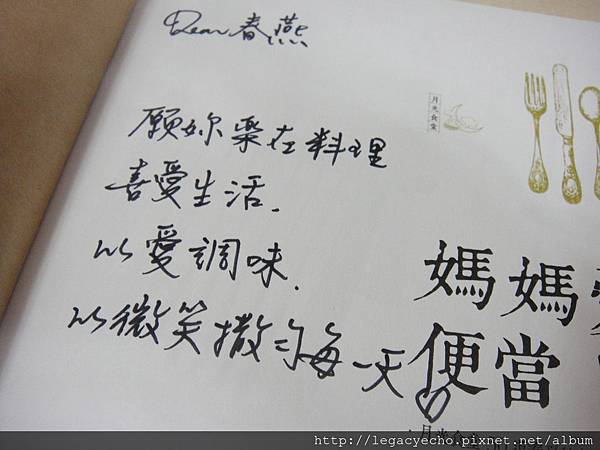 Dear 春燕
願妳樂在料理
喜愛生活.
以愛調味.
以微笑撒ㄉ每一天
月光食堂
媽媽
便當
http://legacyecho.pixnet.net/album